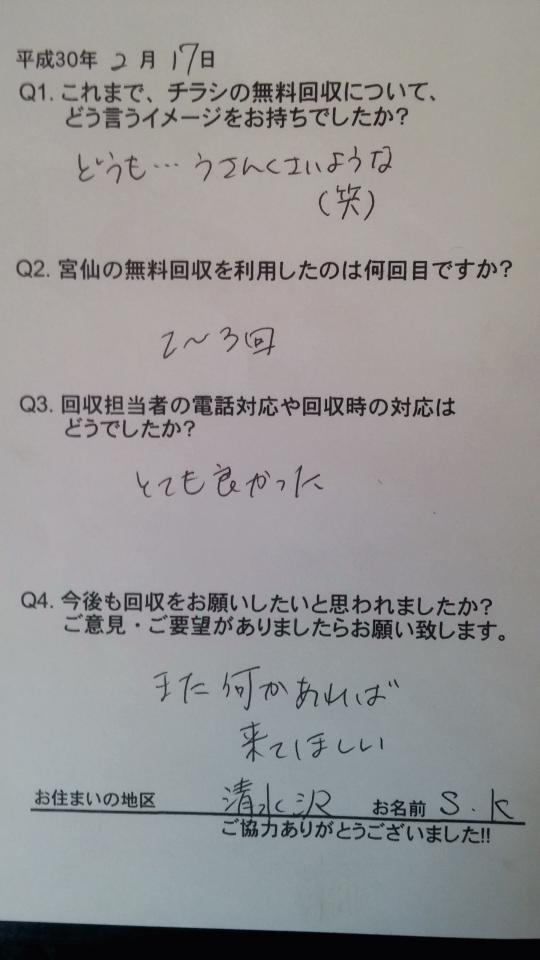 平成30年 2月 17日
Q1. これまで、チラシの無料回収について、
どう言うイメージをお持ちでしたか?
どうも…うさんくさいような
(笑)
Q2. 宮仙の無料回収を利用したのは何回目ですか?
2〜3回
Q3. 回収担当者の電話対応や回収時の対応は
どうでしたか?
とても良かった
Q4. 今後も回収をお願いしたいと思われましたか?
ご意見・ご要望がありましたらお願い致します。
また何かあれば
来てほしい
お住まいの地区 清水沢 お名前 S.K
ご協力ありがとうございました!!